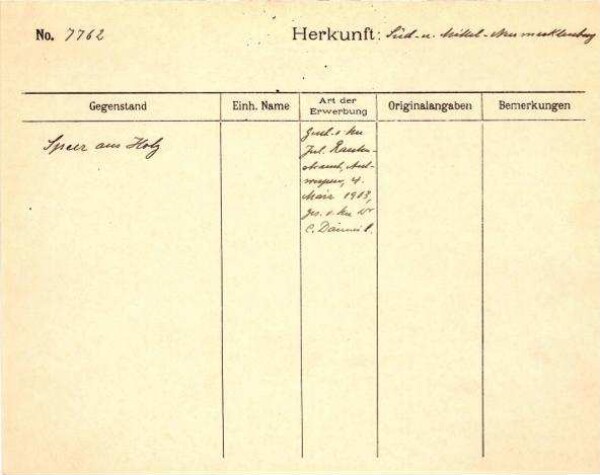 No. 7762
Herkunft: Süd- u. Mittel-Neumecklenburg
Gegenstand
Einh. Name
Art der Erwerbung
Originalangaben
Bemerkungen
Speer aus Holz
Jul.
Antwerpen, 4.
März 1913,
ges. v. Dr
C.